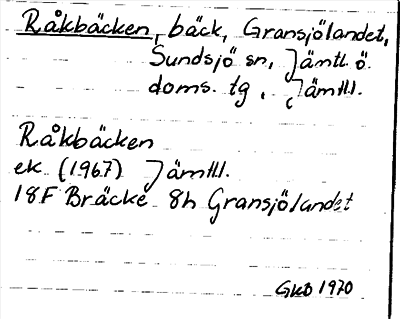 Råkbäcken, bäck, Gransjölandet,
Sundsjö sn, Jämtl. ö.
doms. tg, Jämtl.
Råkbäcken
ek (1967) Jämtl.
18F Bräcke 8h Gransjölandet
GKB 1970